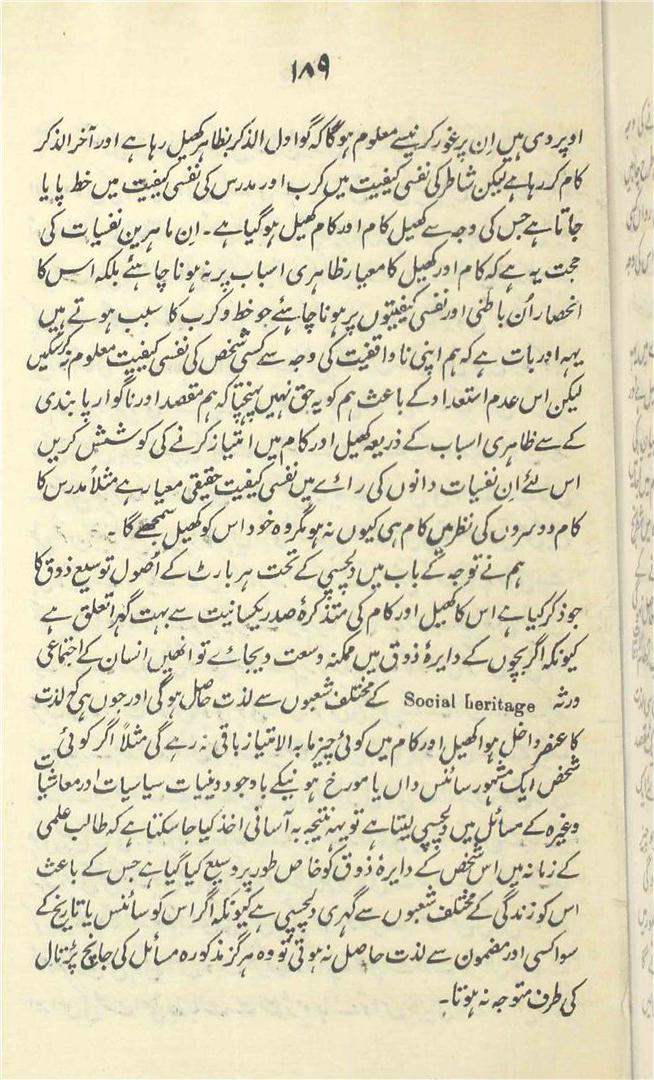 ۱۸۹
اوپر دی ہیں اِن پر غور کرنیسے معلوم ہوگا کہ گو اول الذکر بظاہر کھیل رہا ہے اور آخر الذکر
کام کر رہا ہے لیکن شاطر کی نفسی کیفیت میں کرب اور مدرس کی نفسی کیفیت میں خط پایا
جاتا ہے جس کی وجہ سے کھیل کام اور کام کھیل ہوگیا ہے۔ اِن ماہرین نفسیات کی
حجت یہ ہے کہ کام اور کھیل کا معیار ظاہری اسباب پر نہ ہونا چاہئے بلکہ اس کا
انحصار اُن باطنی اور نفسی کیفیتوں پر ہونا چاہئے جو خط و کرب کا سبب ہوتے ہیں
یہہ اور بات ہے کہ ہم اپنی ناواقفیت کی وجہ سے کسی شخص کی نفسی کیفیت معلوم نہ کرسکیں
لیکن اس عدم استعداد کے باعث ہم کو یہ حق نہیں پہنچتا کہ ہم مقصد اور ناگوار پابندی
کے سے ظاہری اسباب کے ذریعہ کھیل اور کام میں امتیاز کرنے کی کوشش کریں
اس لئے اِن نفسیات دانوں کی رائے میں نفسی کیفیت حقیقی معیار ہے مثلاً مدرس کا
کام دوسروں کی نظر میں کام ہی کیوں نہ ہو مگر وہ خود اس کو کھیل سمجھے گا۔
ہم نے توجہ کے باب میں دلچسپی کے تحت ہربارٹ کے اُصول توسیع ذوق کا
جو ذکر کیا ہے اس کا کھیل اور کام کی متذکرۂ صدر یکسانیت سے بہت گہرا تعلق ہے
کیونکہ اگر بچوں کے دایرۂ ذوق میں ممکنہ وسعت دیجائے تو انھیں انسان کے اجتماعی
ورثہ Social heritage کے مختلف شعبوں سے لذت حاصل ہوگی اور جوں ہی کہ لذت
کا عنصر داخل ہوا کھیل اور کام میں کوئی چیز مابہ الامتیاز باقی نہ رہے گی مثلاً اگر کوئی
شخص ایک مشہور سائنس داں یا مورخ ہونیکے باوجود دینیات سیاسیات اور معاشیات
وغیرہ کے مسائل میں دلچسپی لیتا ہے تو یہہ نتیجہ بہ آسانی اخذ کیا جا سکتا ہے کہ طالب علمی
کے زمانہ میں اس شخص کے دایرۂ ذوق کو خاص طور پر وسیع کیا گیا ہے جس کے باعث
اس کو زندگی کے مختلف شعبوں سے گہری دلچسپی ہے کیونکہ اگر اس کو سائنس یا تاریخ کے
سوا کسی اور مضمون سے لذت حاصل نہ ہوتی تو وہ ہرگز مذکورہ مسائل کی جانچ پڑتال
کی طرف متوجہ نہ ہوتا۔